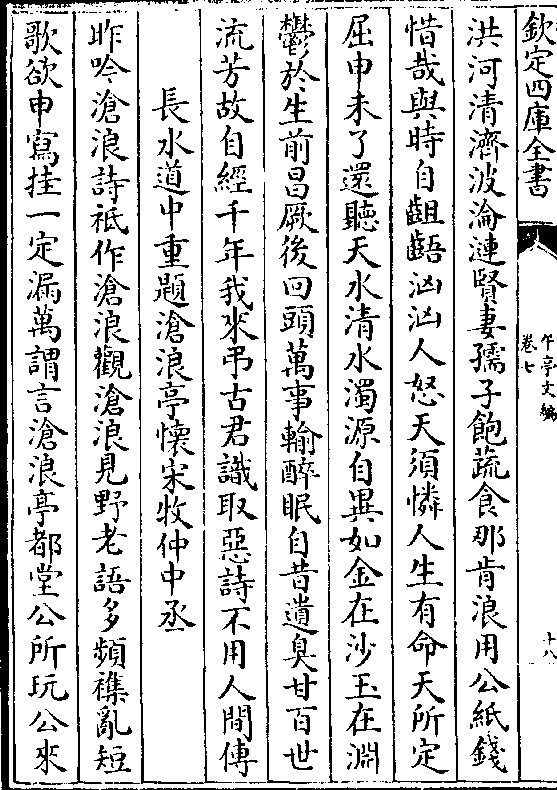 欽定四庫全書
午亭文編
卷七
十八
洪河清濟波淪漣賢妻孺子飽蔬食那肯浪用公紙錢
惜哉與時自齟齬洶洶人怒天須憐人生有命天所定
屈申未了還聽天水清水濁源自異如金在沙玉在淵
鬱於生前昌厥後回頭萬事輸醉眠自昔遺臭甘百世
流芳故自經千年我來弔古君識取惡詩不用人間傳
長水道中重題滄浪亭懷宋牧仲中丞
昨吟滄浪詩祇作滄浪觀滄浪見野老語多頻襍亂短
歌欲申寫挂一定漏萬謂言滄浪亭都堂公所玩公來